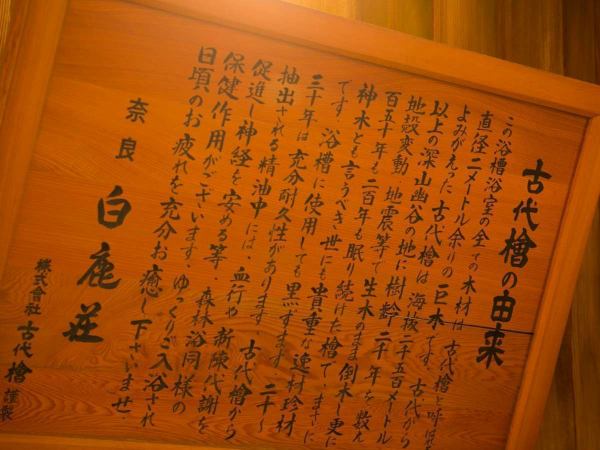 古代檜の由来
この浴槽浴室の全ての木材は、古代檜と呼ばれ
直径二メートル余りの巨木です。古代から
よみがえった古代檜は、海抜二千五百メートル
以上の深山幽谷の地に樹齢二千年を数え
地殻変動、地震等で生木のまま倒木し更に
百五十年も二百年も眠り続けた檜で、まさに
神木とも言うべき世にも貴重な逸材珍材
です。浴槽に使用しても黒ずまず、二十〜
三十年は充分耐久性があります。古代檜から
抽出される精油中には、血行や新陳代謝を
促進し神経を安める等、森林浴同様の
保健作用がございます。ゆっくりご入浴され
日頃のお疲れを充分お癒し下さいませ。
奈良 白鹿荘
株式會社 古代檜 謹製